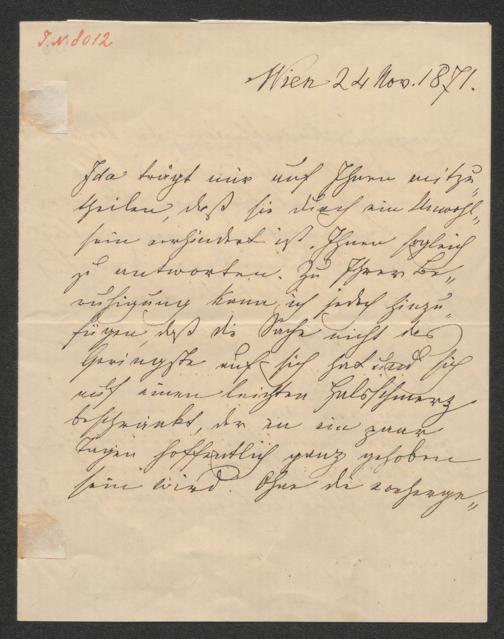 J.N. 8012
Wien 24 Nov. 1871.
Ida trägt mir auf Ihnen mitzu„
theilen, daß sie durch ein Unwohl„
sein verhindert ist, Ihnen sogleich
zu antworten. Zu Ihrer Be„
ruhigung kann ich jedoch hinzu„
fügen, daß die Sache nicht das
Geringste auf sich hat und sich
auf einen leichten Halsschmerz
beschränkt, der in ein paar
Tagen hoffentlich ganz gehoben
sein wird. Ohne die vorherge„